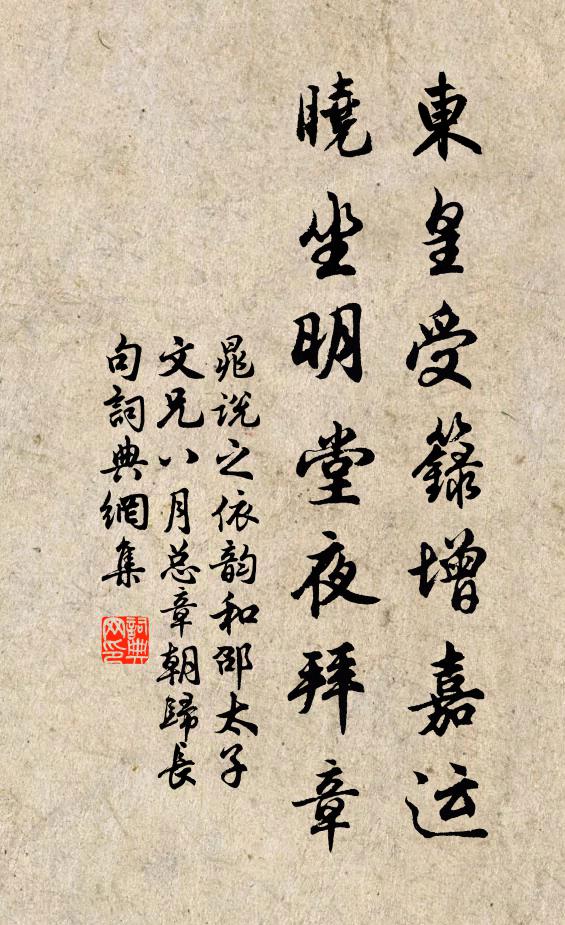 東皇受籙增嘉运
曉坐明堂夜拜章
晁说之依韵和邵太子
文兄八月总章朝歸長
句詞典網集
詞典网印